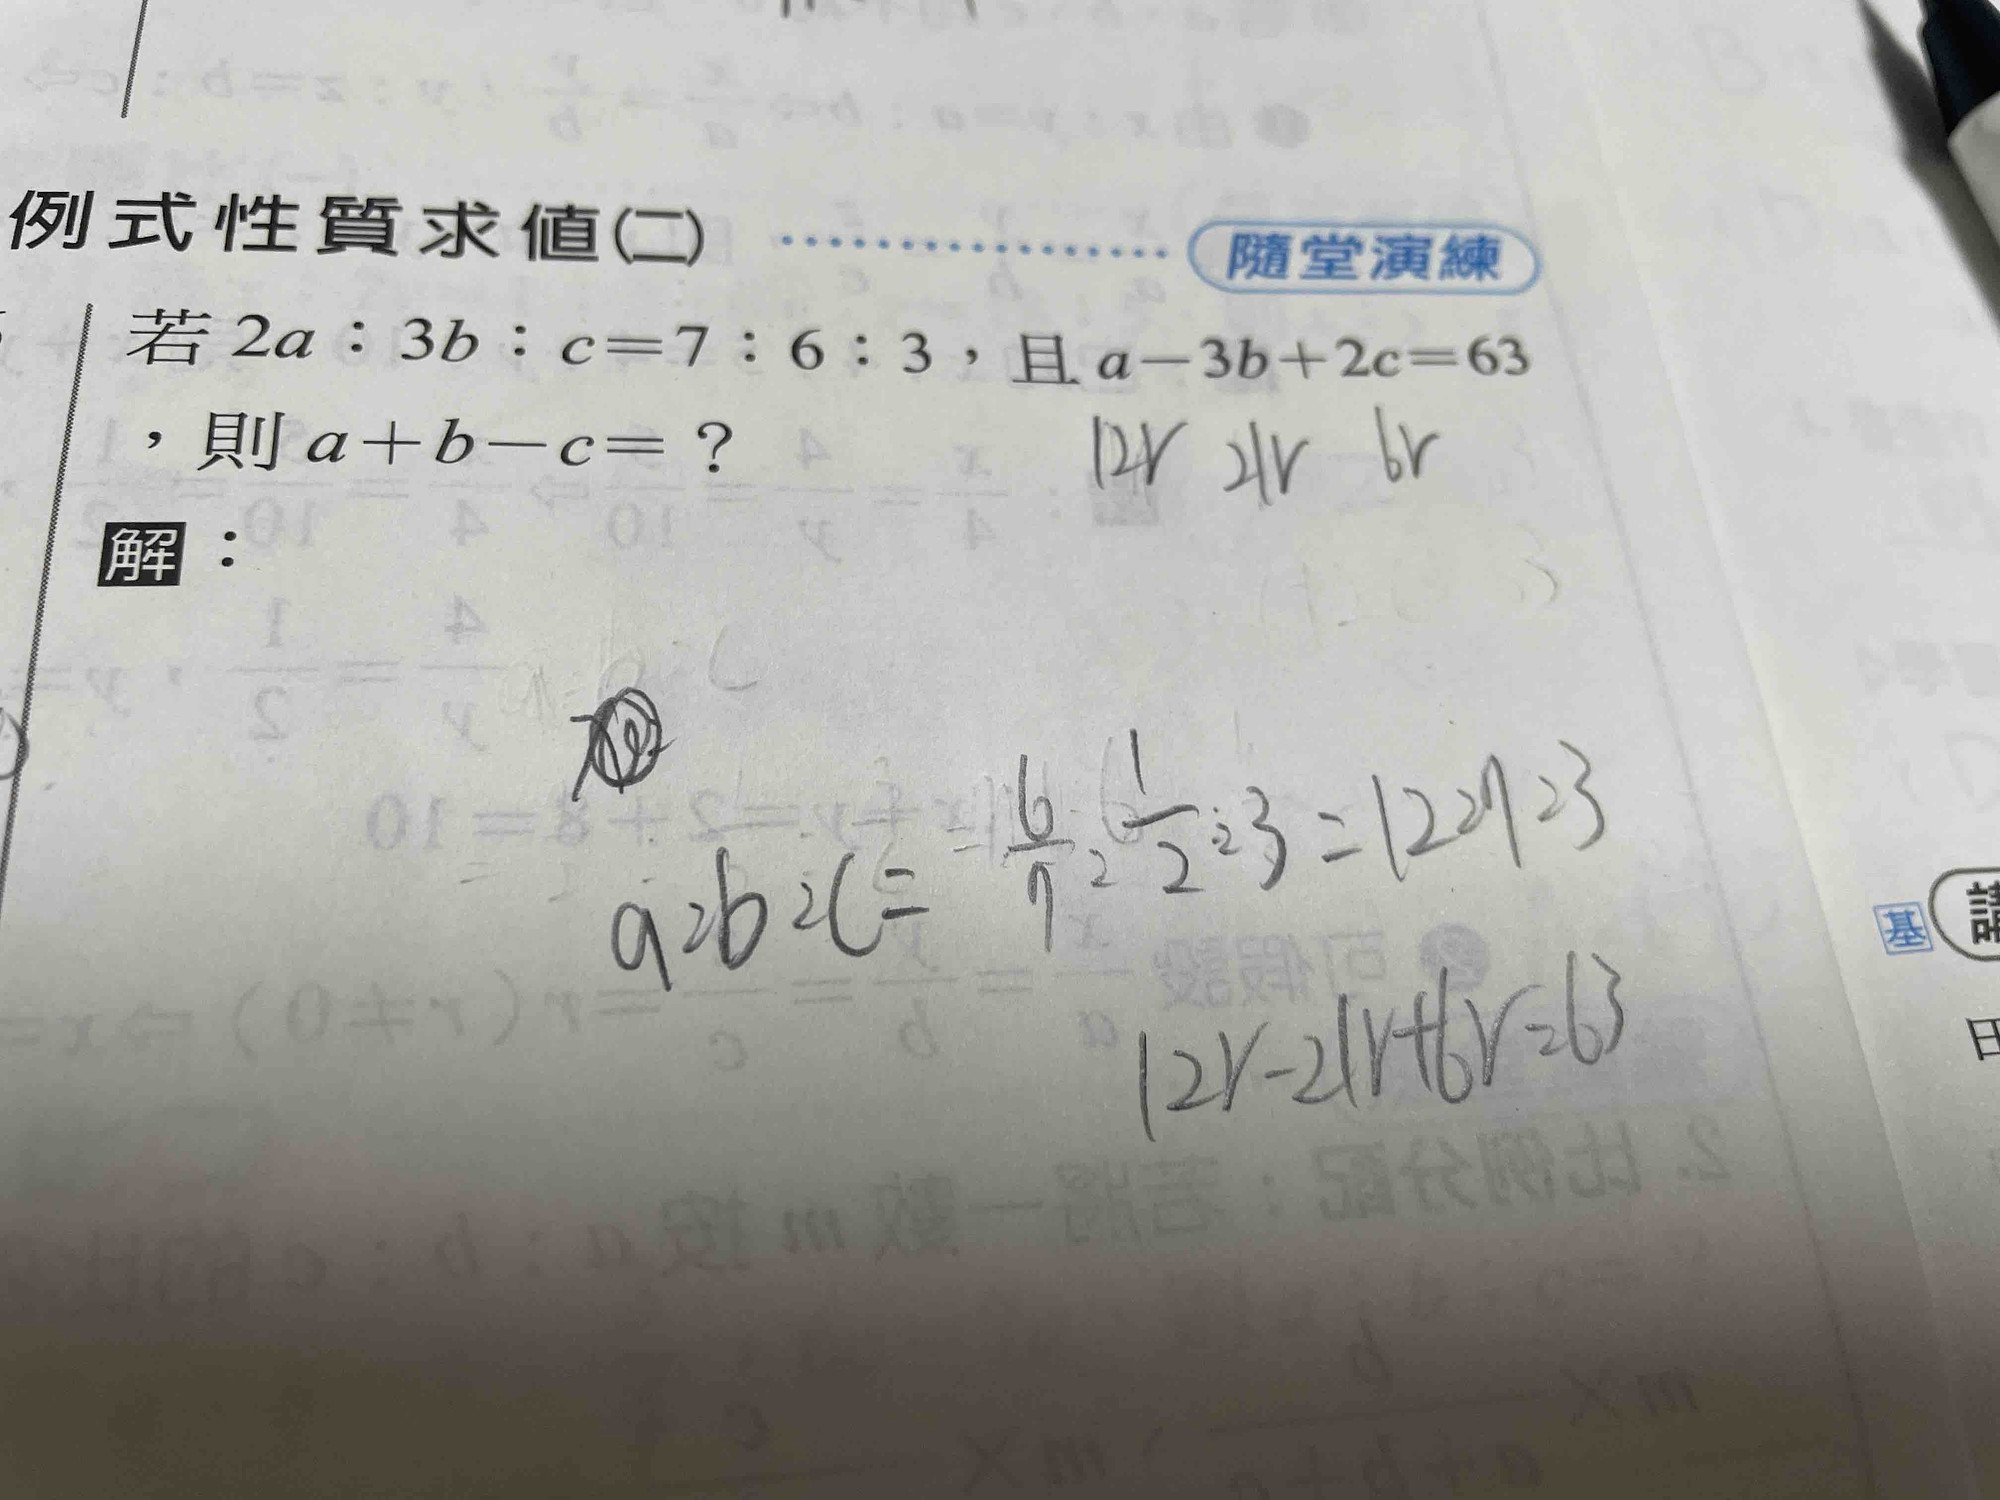 例式性質求值(二) 隨堂演練
若 2a：3b：c=7：6：3，且 a-3b+2c=63
，則 a+b-c=？
12r 21r 6r
解：
a:b:c= = 6/7 : 1/2 : 3 = 12:7:3
12r-21r+6r=63
基 講